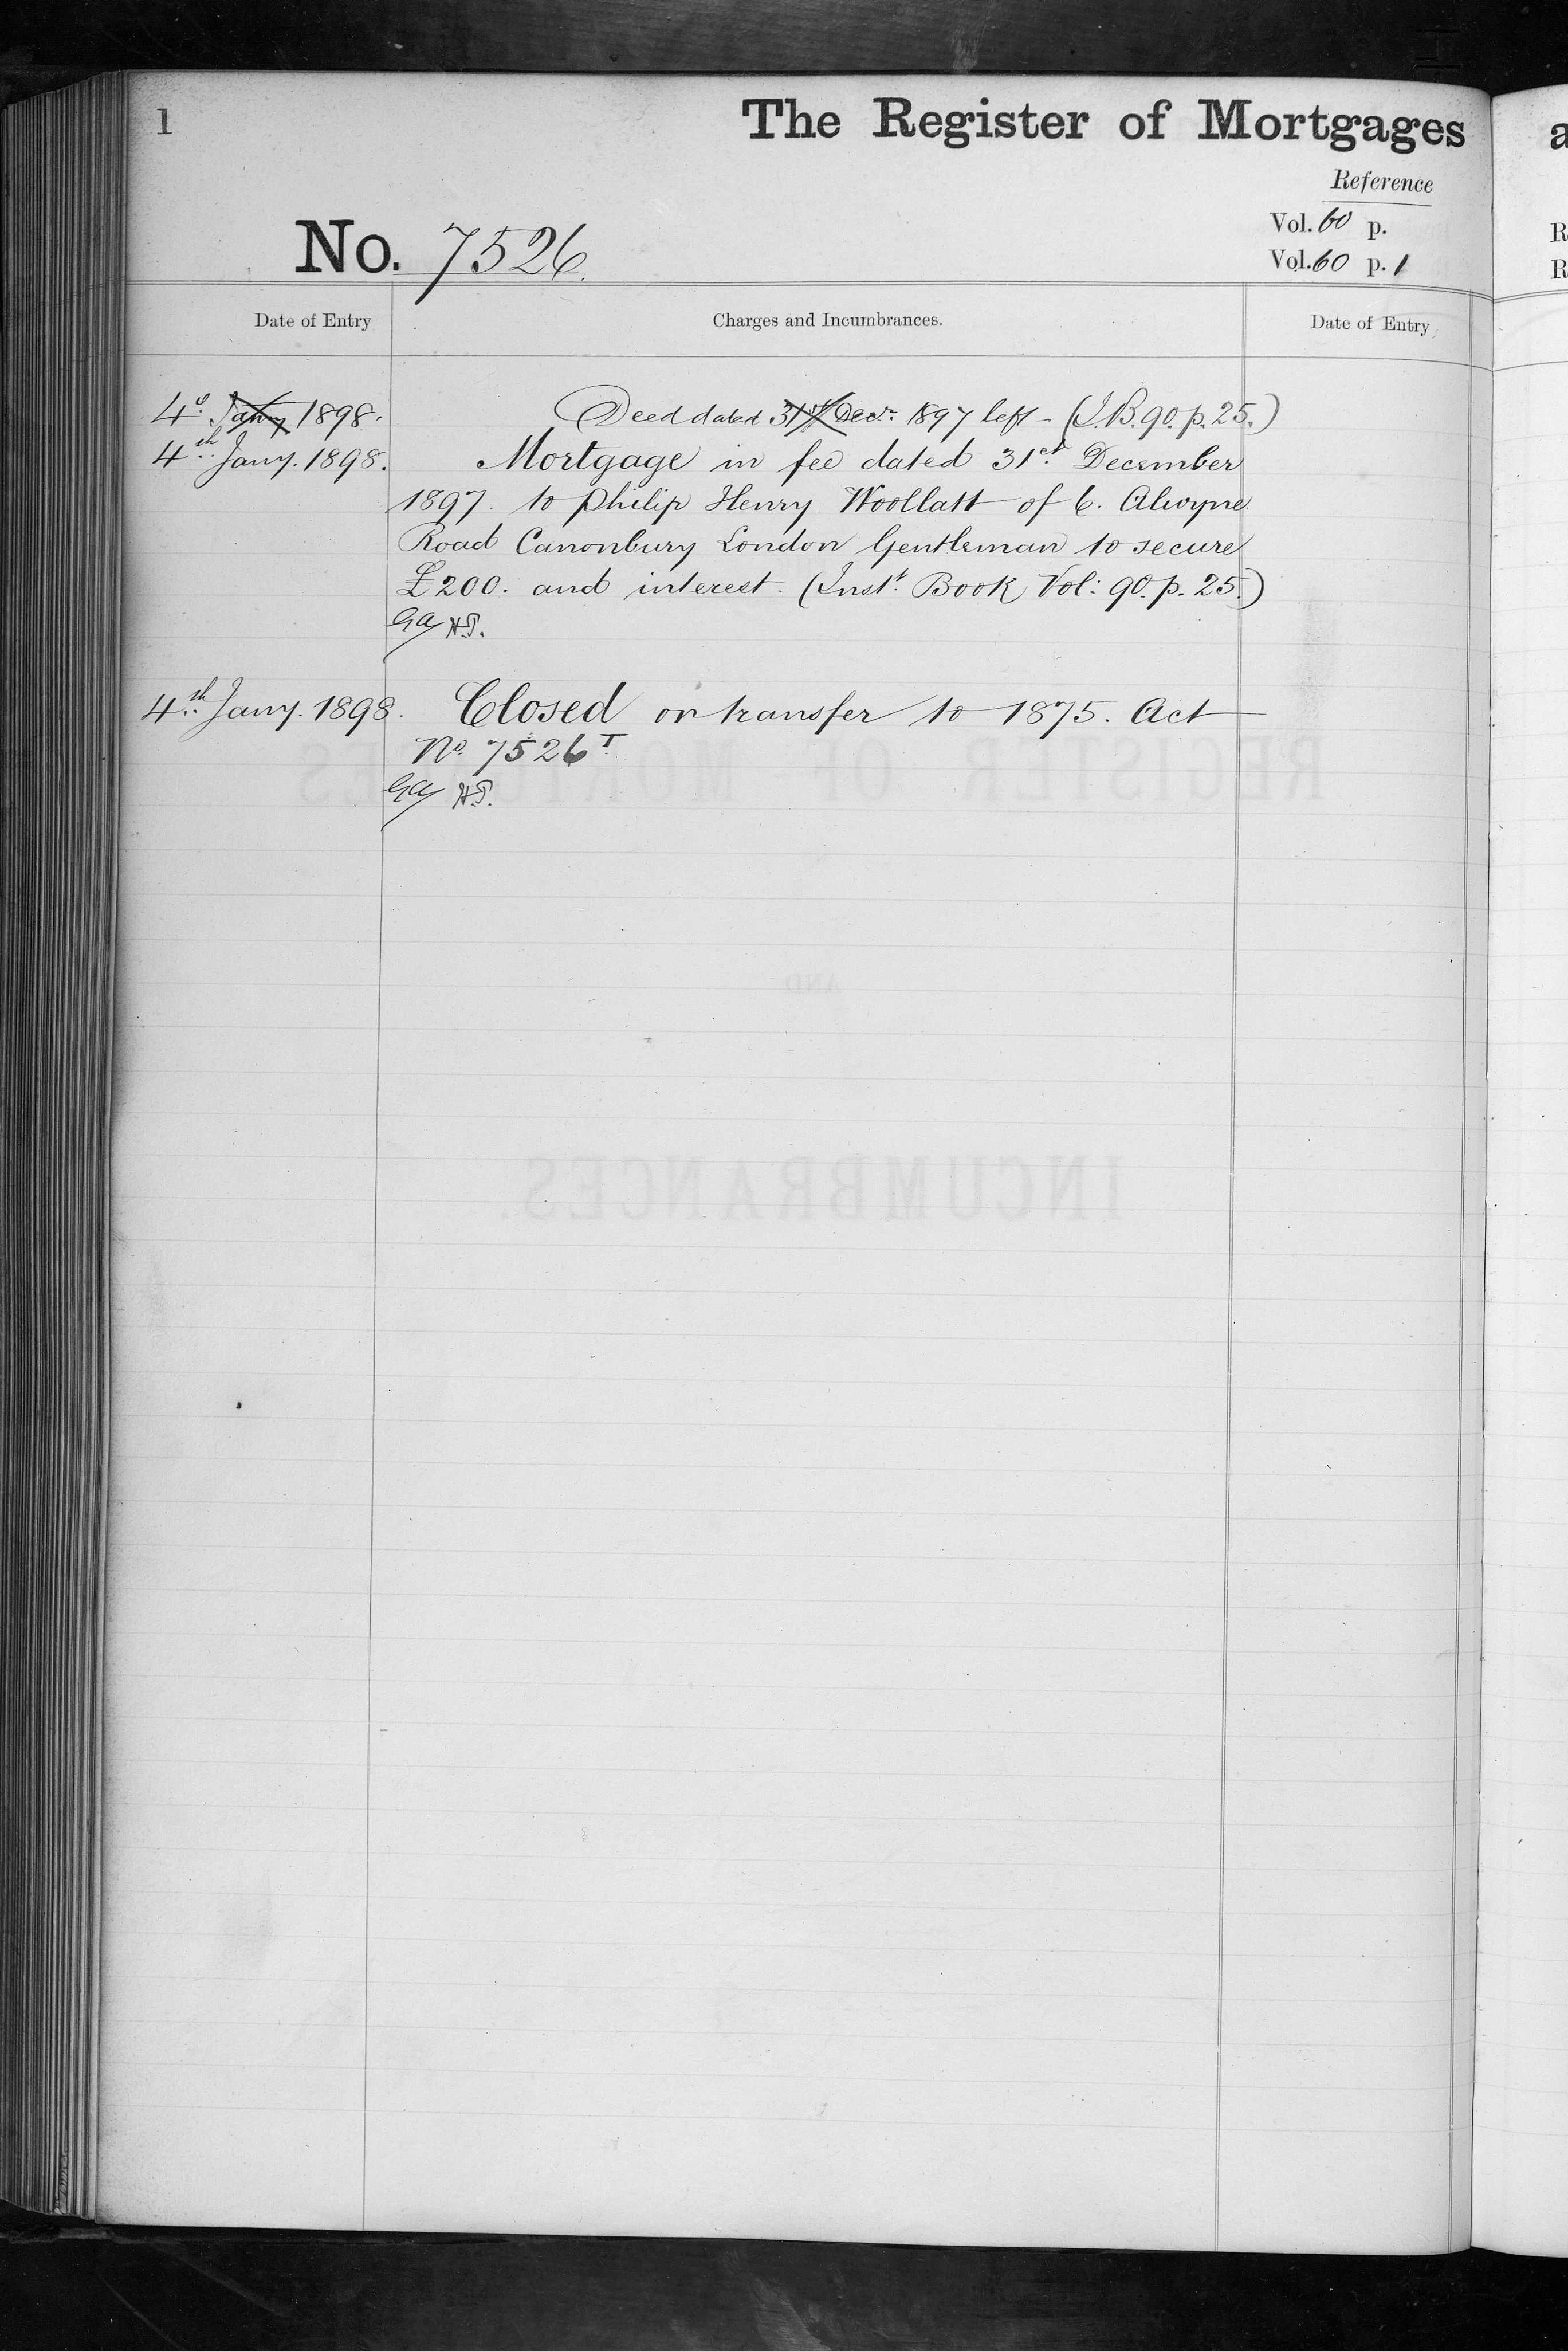 1
The Register of Mortgages
Reference
Vol. 60 p.
Vol. 60 p. 1
No. 7526.
Date of Entry
Charges and Incumbrances.
Date of Entry
4th Jany 1898.
Deed dated 31st Decr. 1897 left - (I.B. 90. p. 25.)
4th Jany. 1898.
Mortgage in fee dated 31st December
1897. to Philip Henry Woollatt of 6. Alwyne
Road Canonbury London Gentleman to secure
£200. and interest. (Inst. Book Vol: 90. p. 25.)
H.P.
4th Jany. 1898.
Closed on transfer to 1875. Act
No. 7526 T
H.P.
REGISTER OF MORTGAGES
AND
INCUMBRANCES.